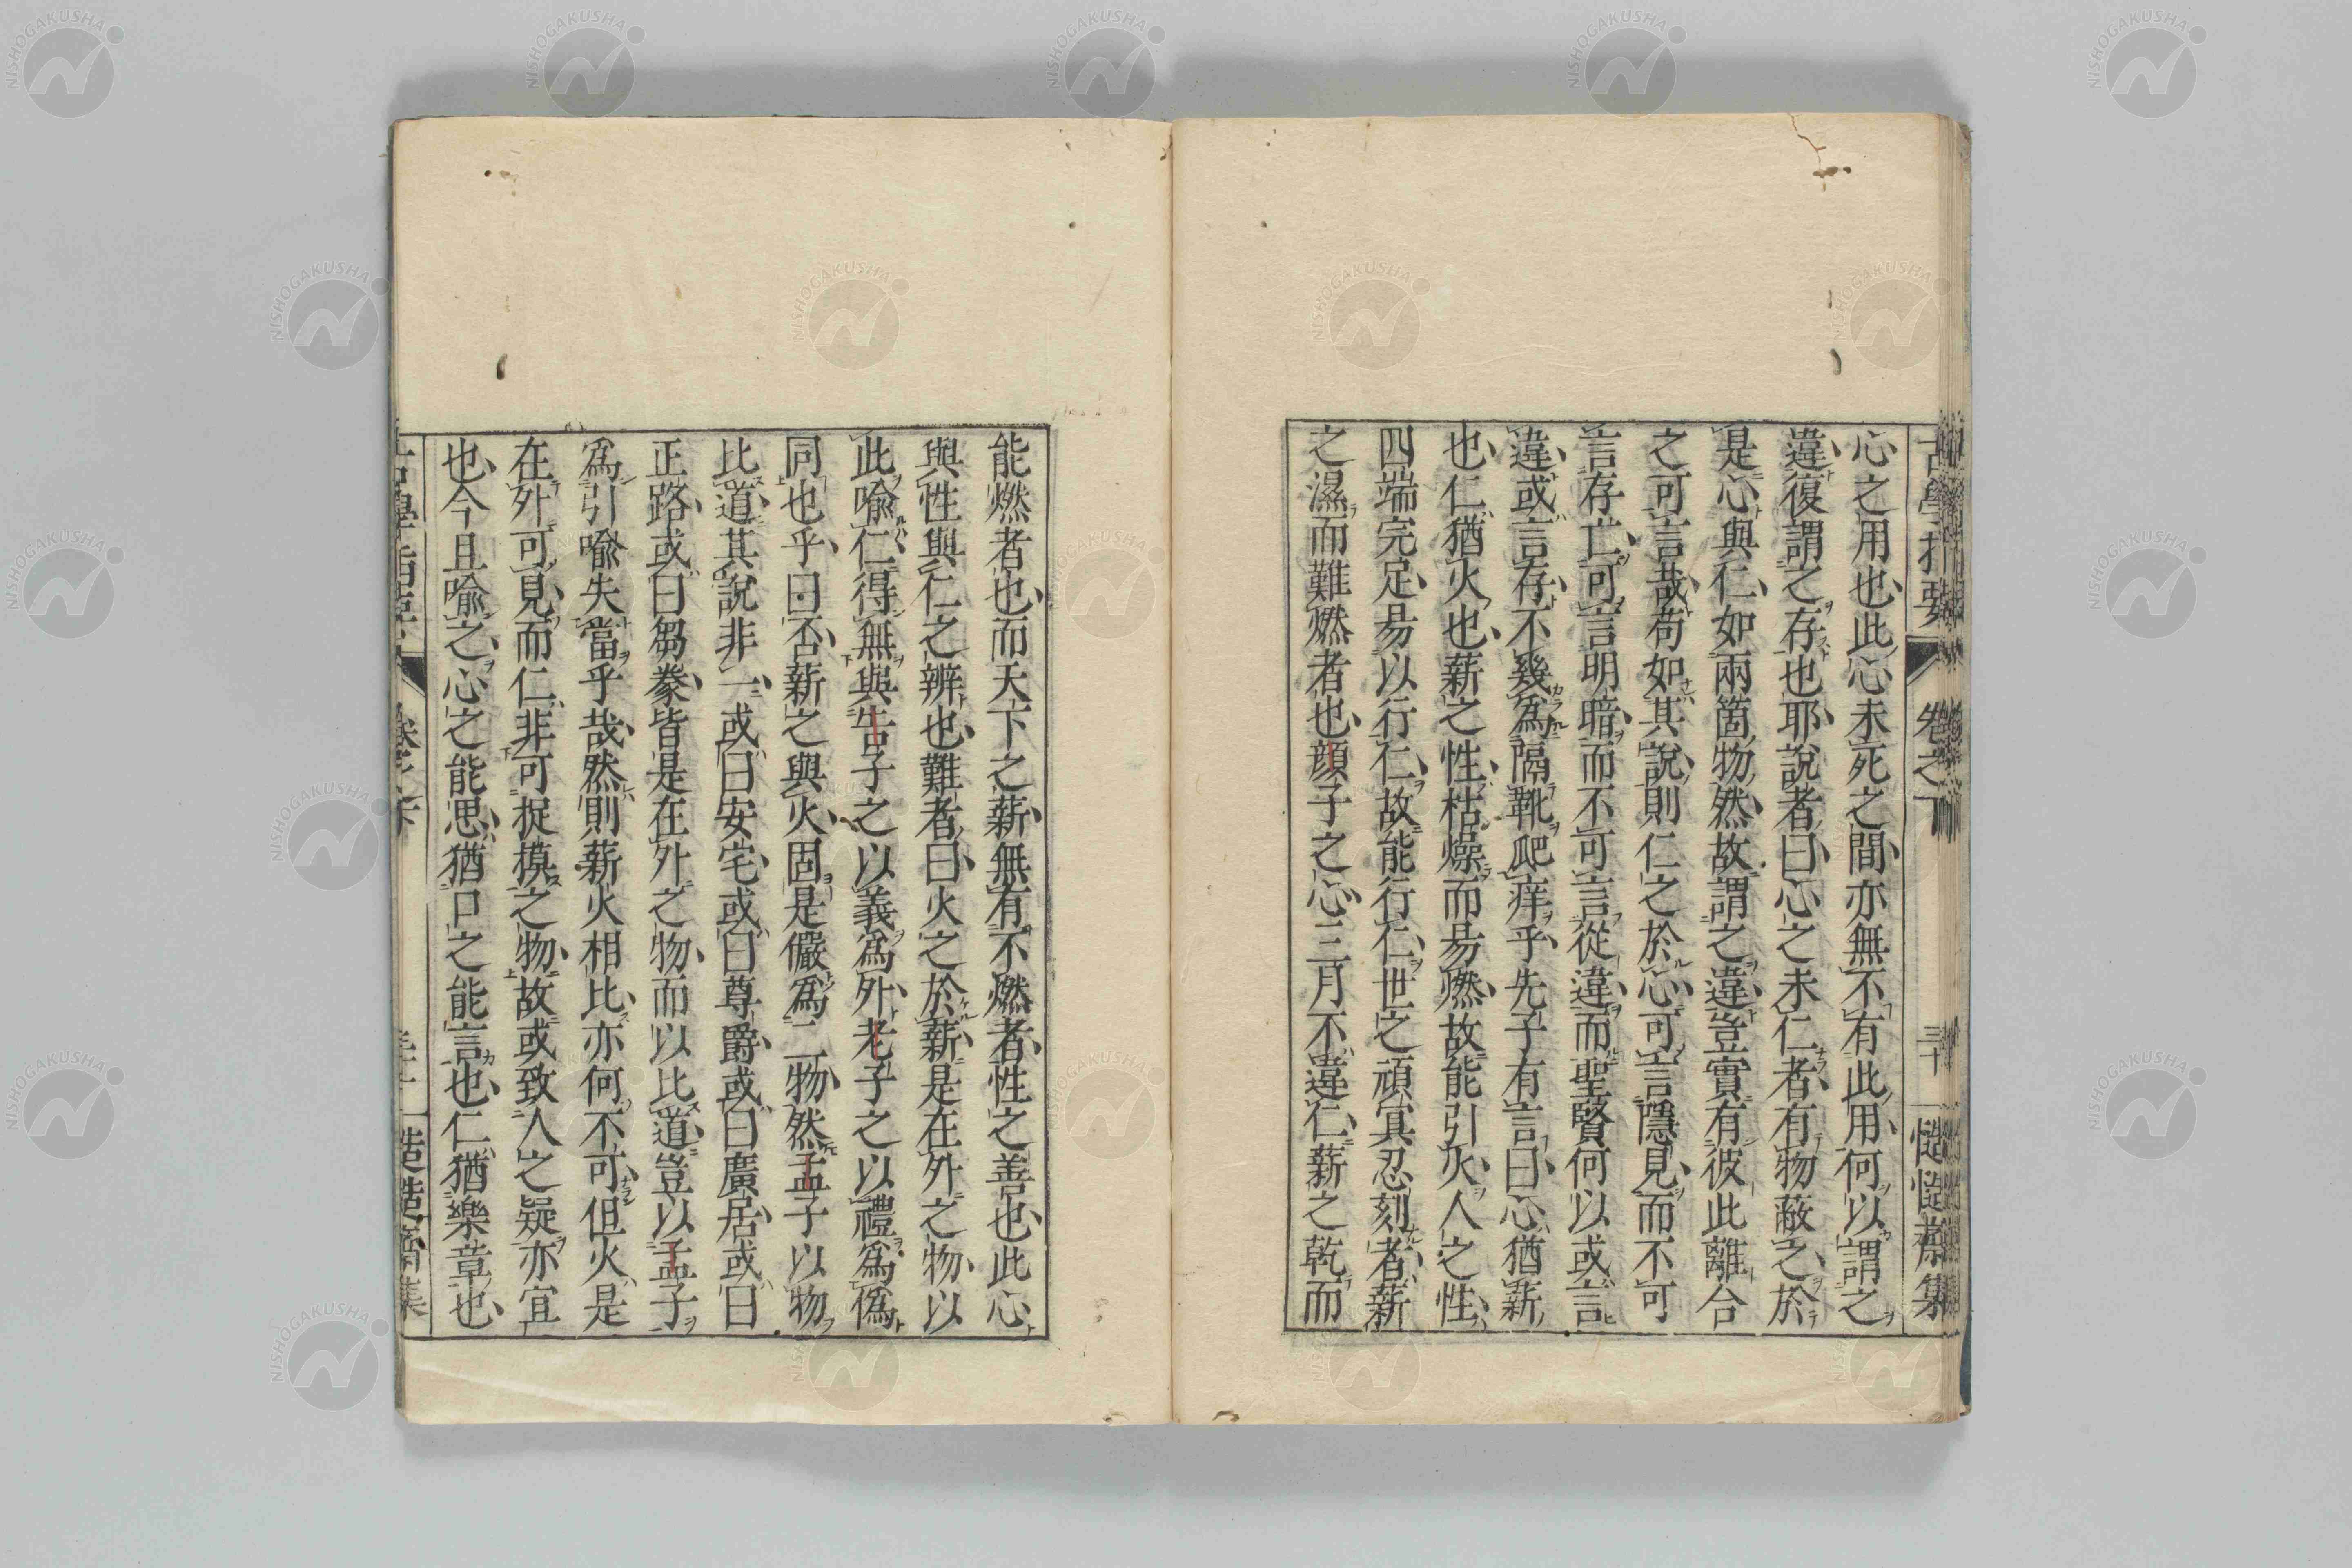 古學指要
卷之下
三十
慥慥齋集
心之用也此心未死之間亦無不有此用何以謂之
違復謂之存也耶說者曰心之未仁者有物蔽之於
是心與仁如兩箇物然故謂之違豈實有彼此離合
之可言哉苟如其說則仁之於心可言隱見而不可
言存亡可言明暗而不可言從違而聖賢何以或言
違或言存不幾爲隔靴爬痒乎先子有言曰心猶薪
也仁猶火也薪之性枯燥而易燃故能引火人之性
四端完足易以行仁故能行仁世之頑冥忍刻者薪
之濕而難燃者也顏子之心三月不違仁薪之乾而
能燃者也而天下之薪無有不燃者性之善也此心
與性與仁之辨也難者曰火之於薪是在外之物以
此喩仁得無與告子之以義爲外老子之以禮爲僞
同也乎曰否薪之與火固是儼爲二物然孟子以物
比道其說非一或曰安宅或曰尊爵或曰廣居或曰
正路或曰芻豢皆是在外之物而以比道豈以孟子
爲引喩失當乎哉然則薪火相比亦何不可但火是
在外可見而仁非可捉摸之物故或致人之疑亦宜
也今且喩之心之能思猶口之能言也仁猶樂章也